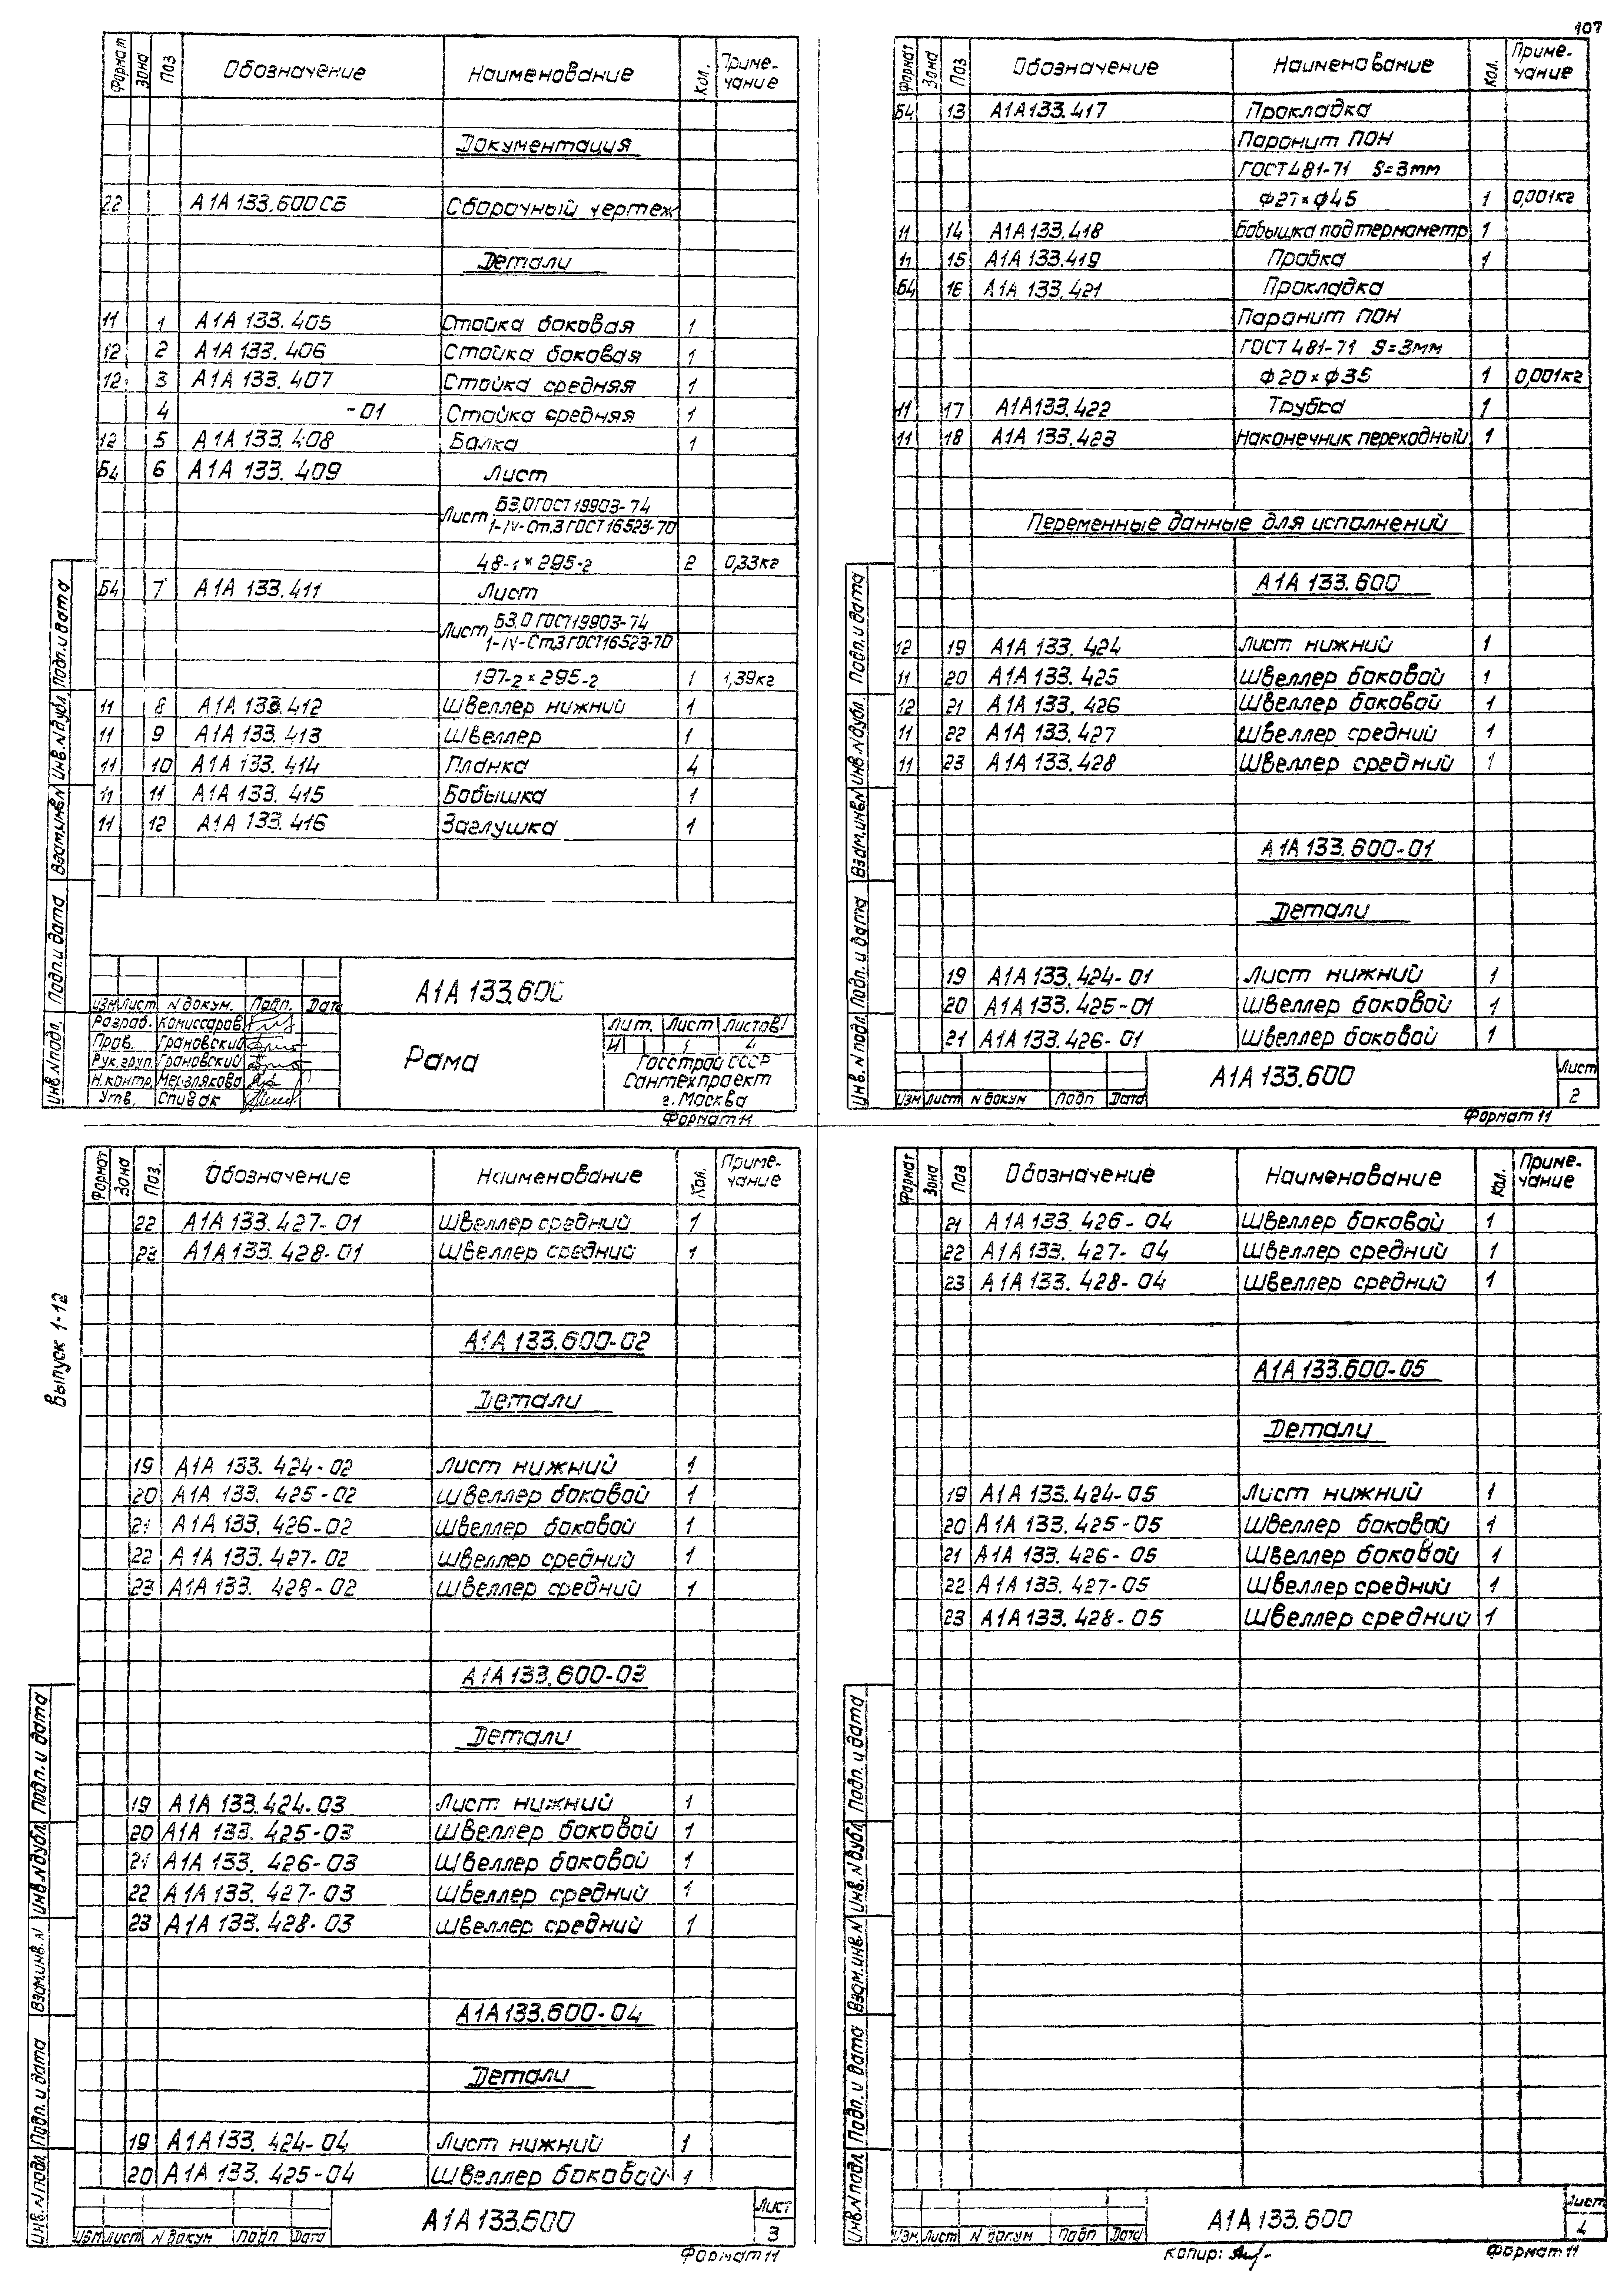 107
Формат Зона Поз Обозначение Наименование Кол. Приме-чание
Документация
22 А1А 133.600СБ Сборочный чертеж
Детали
11 1 А1А 133.405 Стойка боковая 1
12 2 А1А 133.406 Стойка боковая 1
12 3 А1А 133.407 Стойка средняя 1
4 -01 Стойка средняя 1
12 5 А1А 133.408 Балка 1
Б4 6 А1А 133.409 Лист
Лист Б3,0 ГОСТ 19903-74
1-IV-Ст.3 ГОСТ 16523-70
48-1 × 295-2 2 0,33кг
Б4 7 А1А 133.411 Лист
Лист Б3,0 ГОСТ 19903-74
1-IV-Ст3 ГОСТ 16523-70
197-2 × 295-2 1 1,39кг
11 8 А1А 133.412 Швеллер нижний 1
11 9 А1А 133.413 Швеллер 1
11 10 А1А 133.414 Планка 4
11 11 А1А 133.415 Бобышка 1
11 12 А1А 133.416 Заглушка 1
Инв.N подл. Подп. и дата Взам.инв.N Инв.N дубл. Подп. и дата
Изм. Лист N докум. Подп. Дата
Разраб. Комиссаров
Пров. Грановский
Рук.груп. Грановский
Н.контр. Мерзлякова
Утв. Спивак
А1А 133.600
Рама
Лит. Лист Листов
И 1 4
Госстрой СССР
Сантехпроект
г. Москва
Формат 11
Формат Зона Поз Обозначение Наименование Кол. Приме-чание
Б4 13 А1А133.417 Прокладка
Паронит ПОН
ГОСТ 481-71 S=3мм
Ф27×Ф45 1 0,001кг
11 14 А1А 133.418 Бобышка под термометр 1
11 15 А1А 133.419 Пробка 1
Б4 16 А1А 133.421 Прокладка
Паронит ПОН
ГОСТ 481-71 S=3мм
Ф20×Ф35 1 0,001кг
11 17 А1А133.422 Трубка 1
11 18 А1А 133.423 Наконечник переходный 1
Переменные данные для исполнений
А1А 133.600
12 19 А1А 133.424 Лист нижний 1
11 20 А1А 133.425 Швеллер боковой 1
12 21 А1А 133.426 Швеллер боковой 1
11 22 А1А 133.427 Швеллер средний 1
11 23 А1А 133.428 Швеллер средний 1
А1А 133.600-01
Детали
19 А1А 133.424-01 Лист нижний 1
20 А1А 133.425-01 Швеллер боковой 1
21 А1А 133.426-01 Швеллер боковой 1
Инв.N подл. Подп. и дата Взам.инв.N Инв.N дубл. Подп. и дата
Изм Лист N докум Подп Дата
А1А 133.600
Лист
2
Формат 11
Выпуск 1-12
Формат Зона Поз. Обозначение Наименование Кол. Приме-чание
22 А1А 133.427-01 Швеллер средний 1
23 А1А 133.428-01 Швеллер средний 1
А1А 133.600-02
Детали
19 А1А 133.424-02 Лист нижний 1
20 А1А 133.425-02 Швеллер боковой 1
21 А1А 133.426-02 Швеллер боковой 1
22 А1А 133.427-02 Швеллер средний 1
23 А1А 133.428-02 Швеллер средний 1
А1А 133.600-03
Детали
19 А1А 133.424-03 Лист нижний 1
20 А1А 133.425-03 Швеллер боковой 1
21 А1А 133.426-03 Швеллер боковой 1
22 А1А 133.427-03 Швеллер средний 1
23 А1А 133.428-03 Швеллер средний 1
А1А 133.600-04
Детали
19 А1А133.424-04 Лист нижний 1
20 А1А 133.425-04 Швеллер боковой 1
Инв.N подл Подп. и дата Взам.инв.N Инв.N дубл Подп. и дата
Изм Лист N докум Подп Дата
А1А 133.600
Лист
3
Формат 11
Формат Зона Поз Обозначение Наименование Кол. Приме-чание
21 А1А 133.426-04 Швеллер боковой 1
22 А1А 133.427-04 Швеллер средний 1
23 А1А 133.428-04 Швеллер средний 1
А1А 133.600-05
Детали
19 А1А 133.424-05 Лист нижний 1
20 А1А 133.425-05 Швеллер боковой 1
21 А1А 133.426-05 Швеллер боковой 1
22 А1А 133.427-05 Швеллер средний 1
23 А1А 133.428-05 Швеллер средний 1
Инв.N подл Подп. и дата Взам.инв.N Инв.N дубл Подп. и дата
Изм Лист N докум Подп Дата
А1А 133.600
Лист
4
Копир:
Формат 11